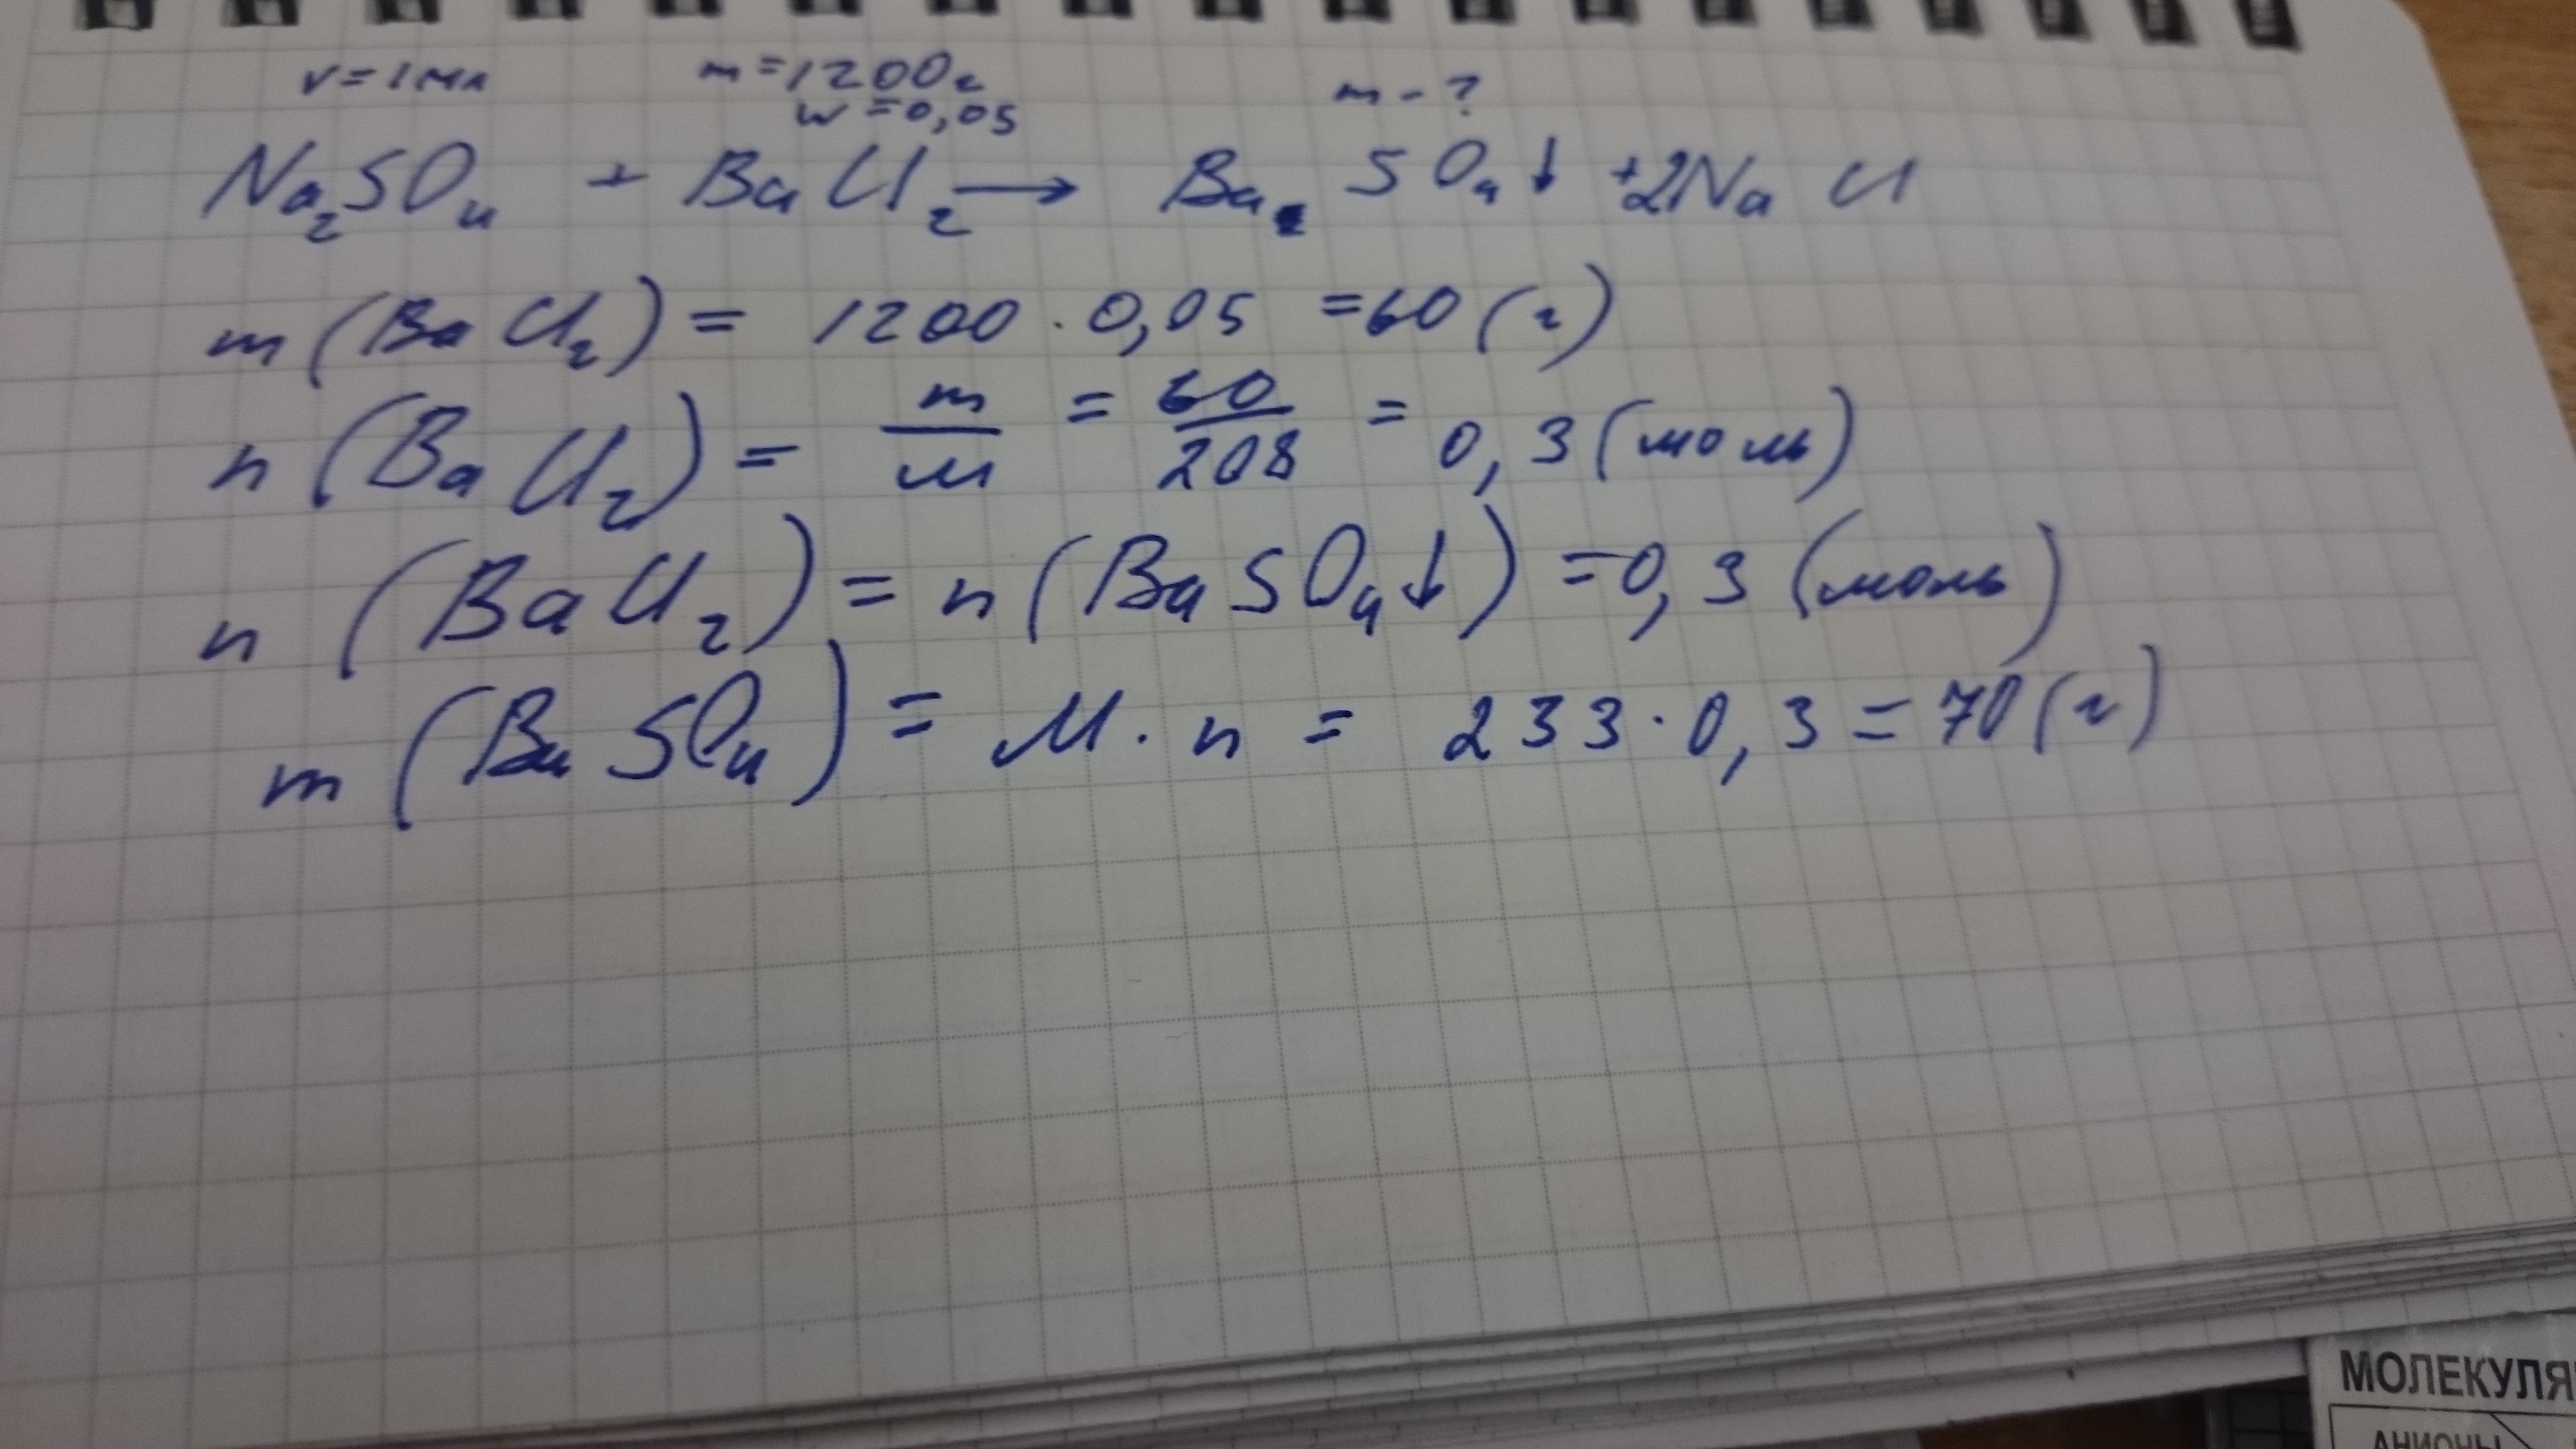 v=1мл m=1200г m-?
w=0,05
Na₂SO₄ + BaCl₂ → BaSO₄↓ +2NaCl
m(BaCl₂) = 1200·0,05 =60(г)
n(BaCl₂) = m/M = 60/208 = 0,3(моль)
n(BaCl₂) = n(BaSO₄↓) =0,3(моль)
m(BaSO₄) = M·n = 233·0,3=70(г)
МОЛЕКУЛЯ
АНИОНЫ